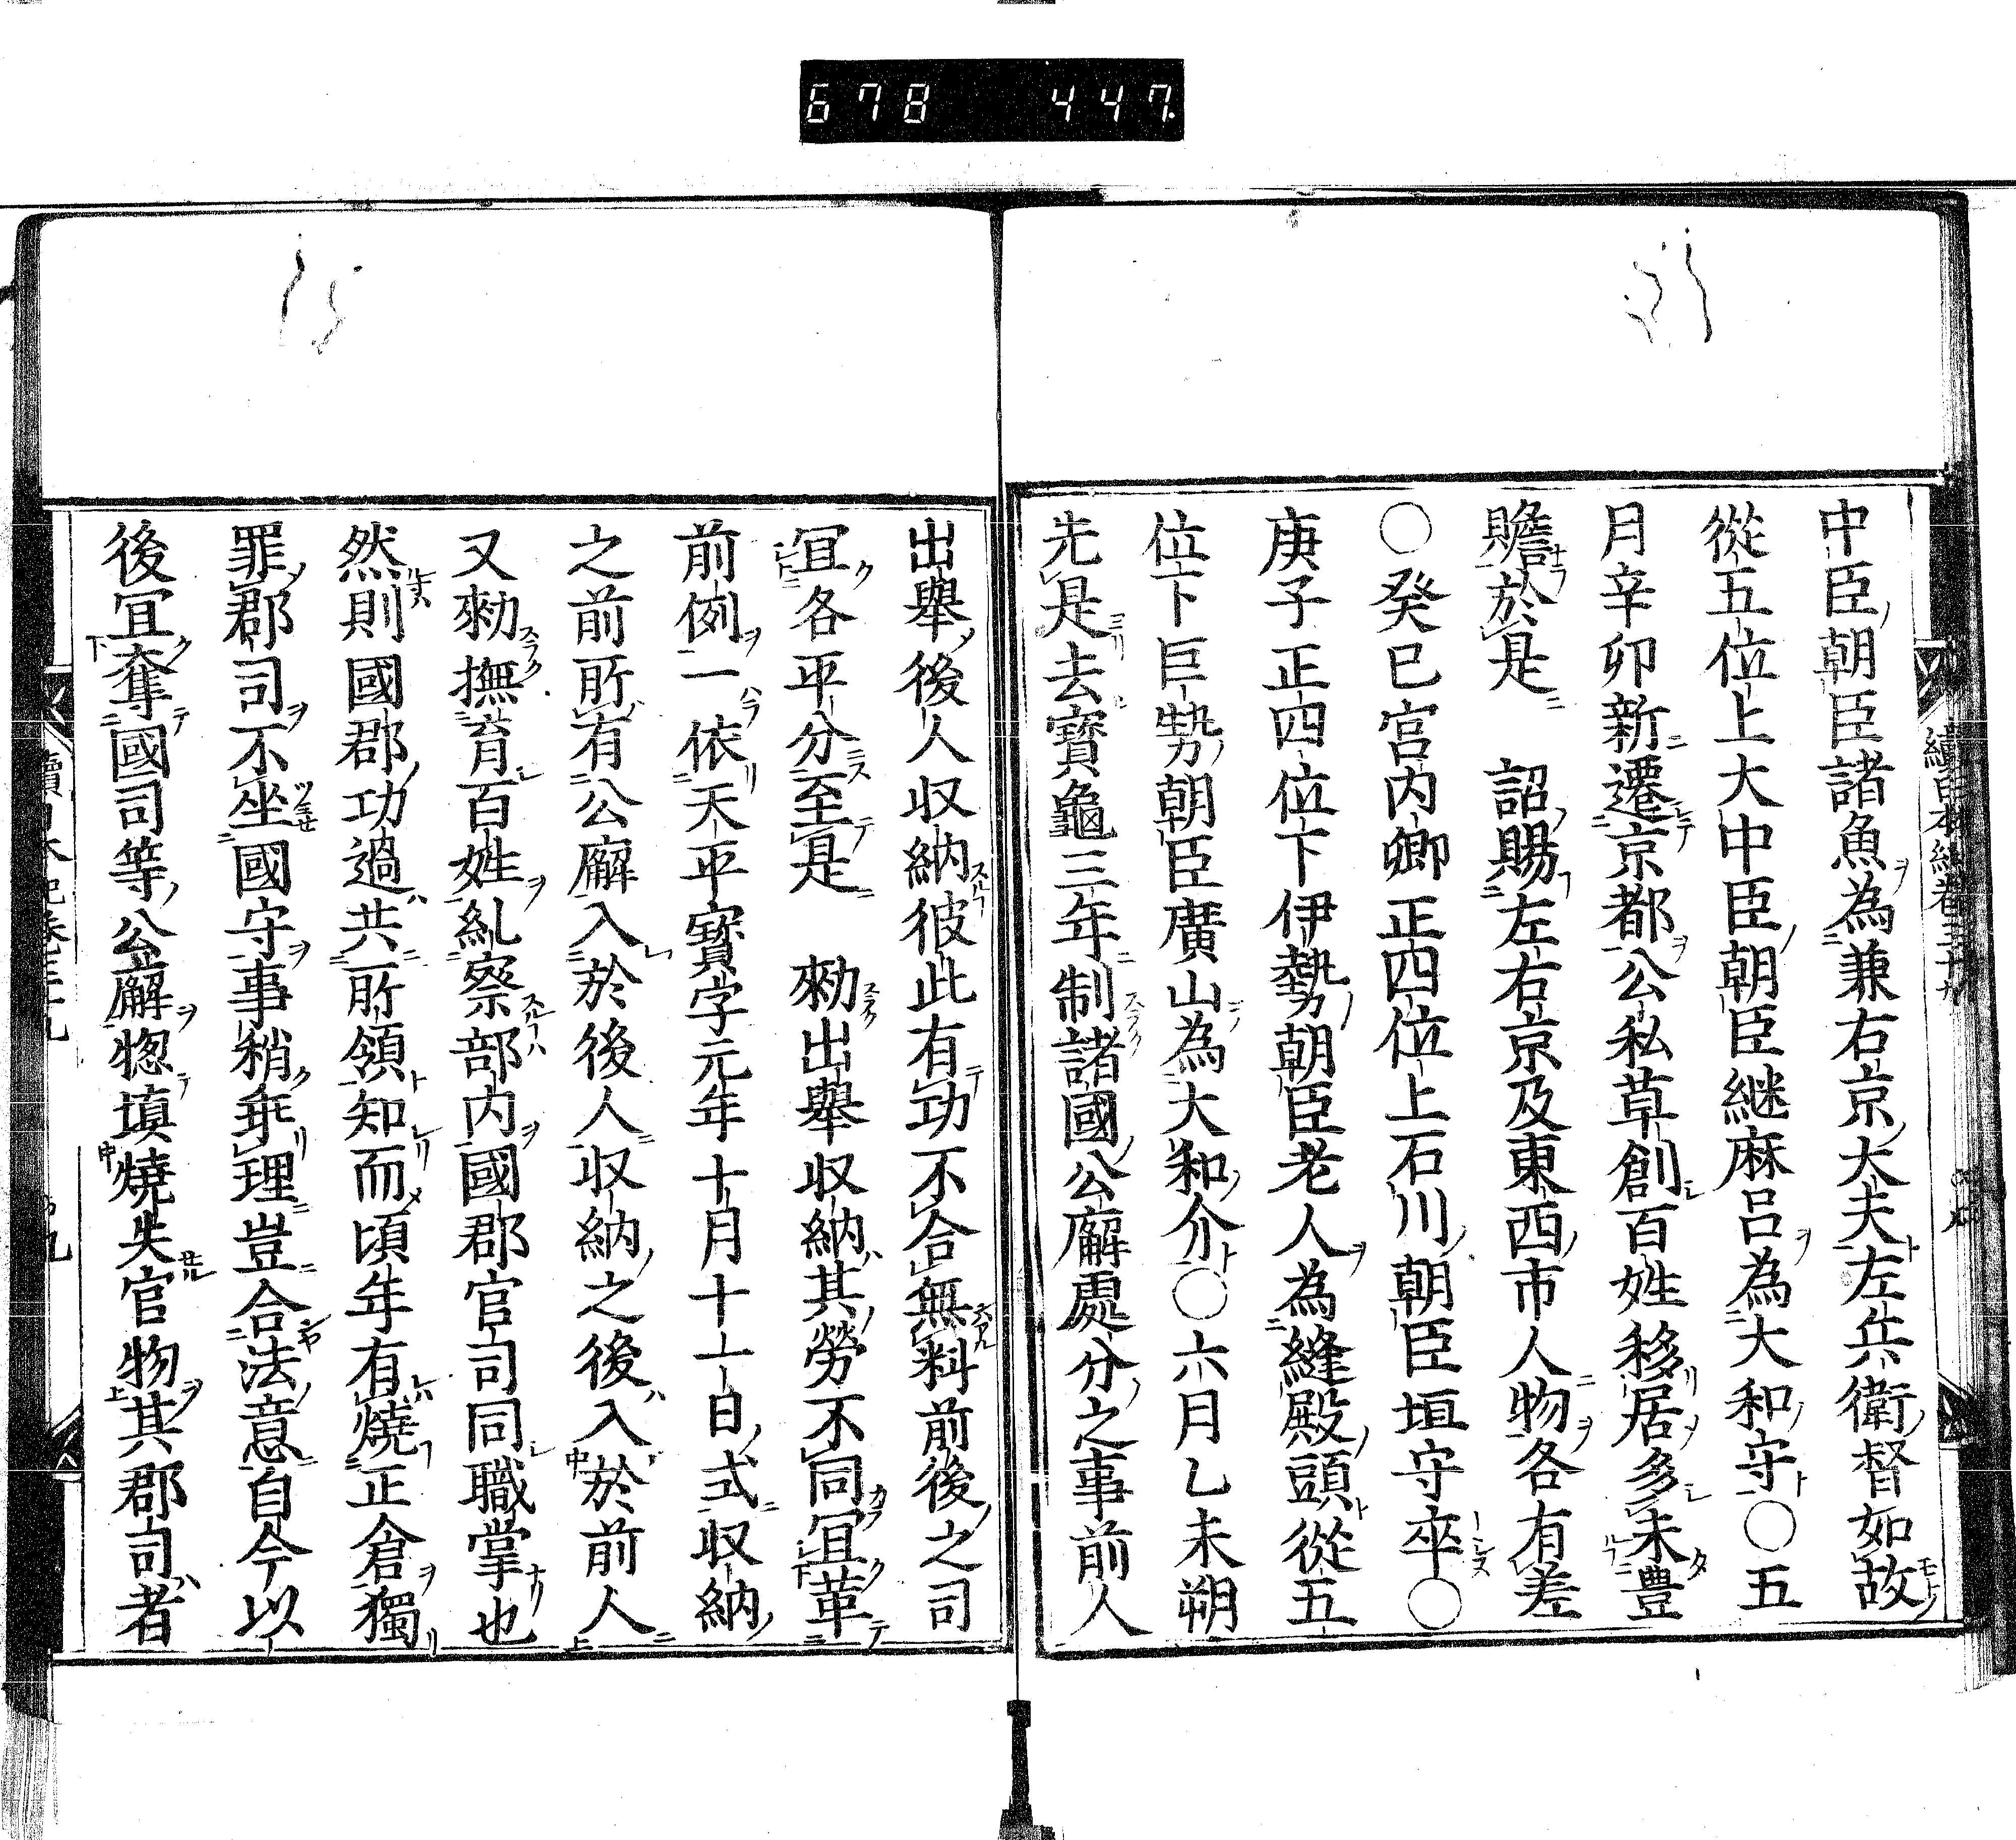 678 447.
中臣朝臣諸魚為兼右京大夫左兵衛督如故
從五位上大中臣朝臣継麻呂為大和守○五
月辛卯新遷京都公私草創百姓移居多未豊
贍於是 詔賜左右京及東西市人物各有差
○癸巳宮内卿正四位上石川朝臣垣守卒○
庚子正四位下伊勢朝臣老人為縫殿頭從五
位下巨勢朝臣廣山為大和介○六月乙未朔
先是去寶龜三年制諸國公廨處分之事前人
出舉後人収納彼此有功不合無料前後之司
宜各平分至是 勑出舉収納其勞不同宜革
前例一依天平寳字元年十月十一日式収納
之前所有公廨入於後人収納之後入於前人
又勑撫育百姓糺察部内國郡官司同職掌也
然則國郡功過共所領知而頃年有燒正倉獨
罪郡司不坐國守事稍乖理豈合法意自今以
後宜奪國司等公廨惣填燒失官物其郡司者